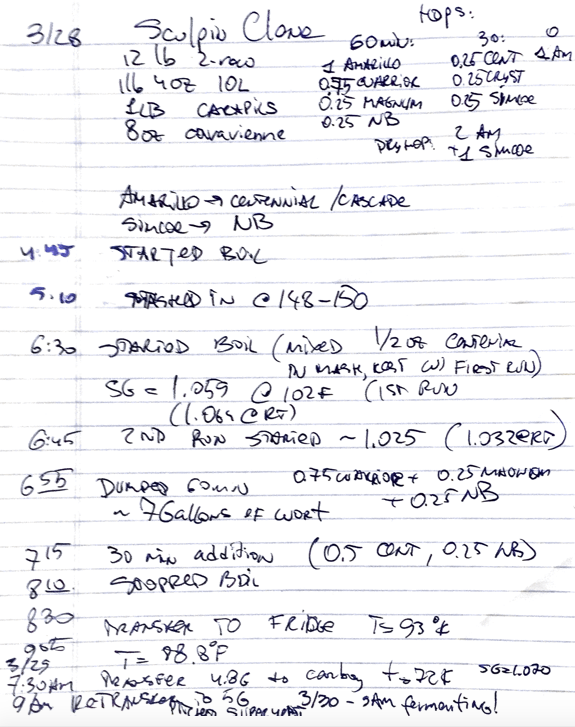 3/28 Sculpin Clone Hops:
12 lb 2-row 60min: 30: 0
1lb 4oz 10L 1 AMARILLO 0.25 CENT 1 AM
1LB CARAPILS 0.75 WARRIOR 0.25 CRYST
8oz caravienne 0.25 MAGNUM 0.25 SIMCOE
0.25 NB
DRY HOP: 2 AM
+1 SIMCOE
AMARILLO → CENTENNIAL / CASCADE
SIMCOE → NB
4:45 STARTED BOIL
5:10 MASHED IN @ 148-150
6:30 STARTED BOIL (MIXED 1/2 OZ CENTENNIAL
IN MASH, REST W/ FIRST RUN)
SG = 1.059 @ 102F (1ST RUN
(1.064 @ RT)
6:45 2ND RUN STARTED ~ 1.025 (1.032@RT)
6 55 DUMPED 60MIN 0.75 WARRIOR + 0.25 MAGNUM
+ 0.25 NB
~ 7 Gallons OF WORT
7 15 30 min addition (0.5 CENT, 0.25 NB)
8 10 STOPPED BOIL
8 30 TRANSFER TO FRIDGE T=93°F
9 05 T= 88.8°F
3/29
7:30AM TRANSFER 4.8G to carboy t=72F SG=1.070
9 Am RETRANSFER to 5G 3/30 - 9AM fermenting!